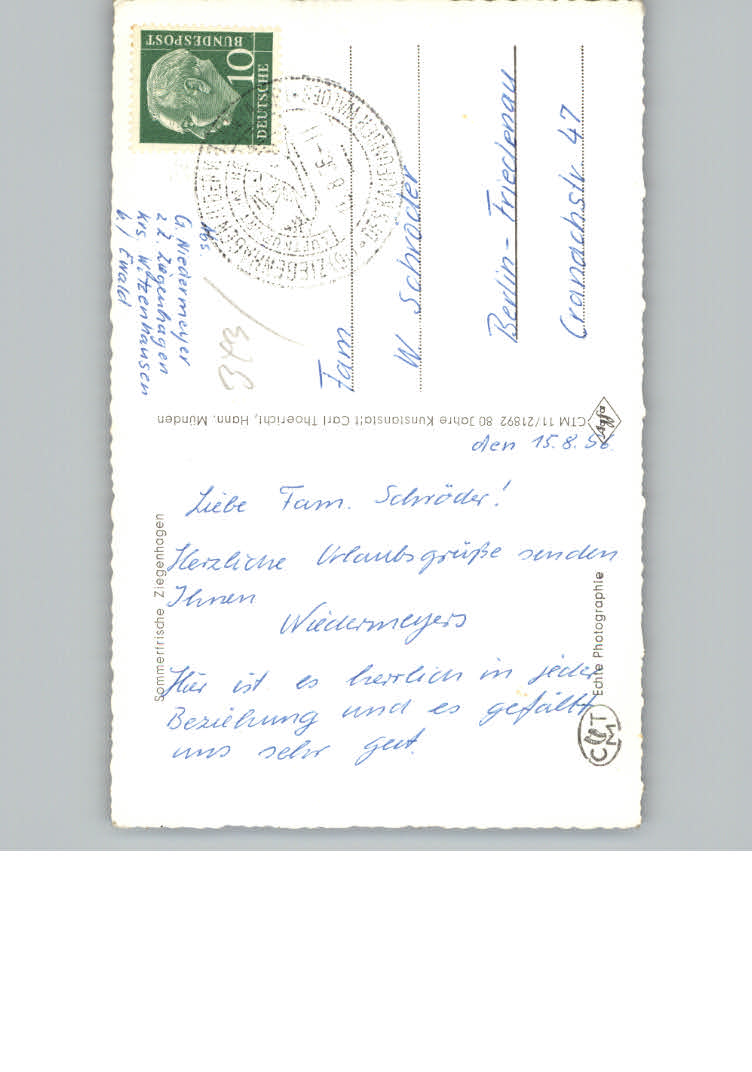 den 15.8.56.
Liebe Fam. Schröder!
Herzliche Urlaubsgrüße senden
Ihnen
Niedermeyers
Hier ist es herrlich in jeder
Beziehung und es gefällt
uns sehr gut.
Sommerfrische Ziegenhagen
Echte Photographie
CMT
CTM 11/21892 80 Jahre Kunstanstalt Carl Thoericht, Hann. Münden
Agfa
Abs.
G. Niedermeyer
z.Z. Ziegenhagen
Krs. Witzenhausen
b/ Ewald
373
DEUTSCHE
BUNDESPOST
10
ZIEGENHAGEN
Fam
W Schröder
Berlin-Friedenau
Cranachstr 47